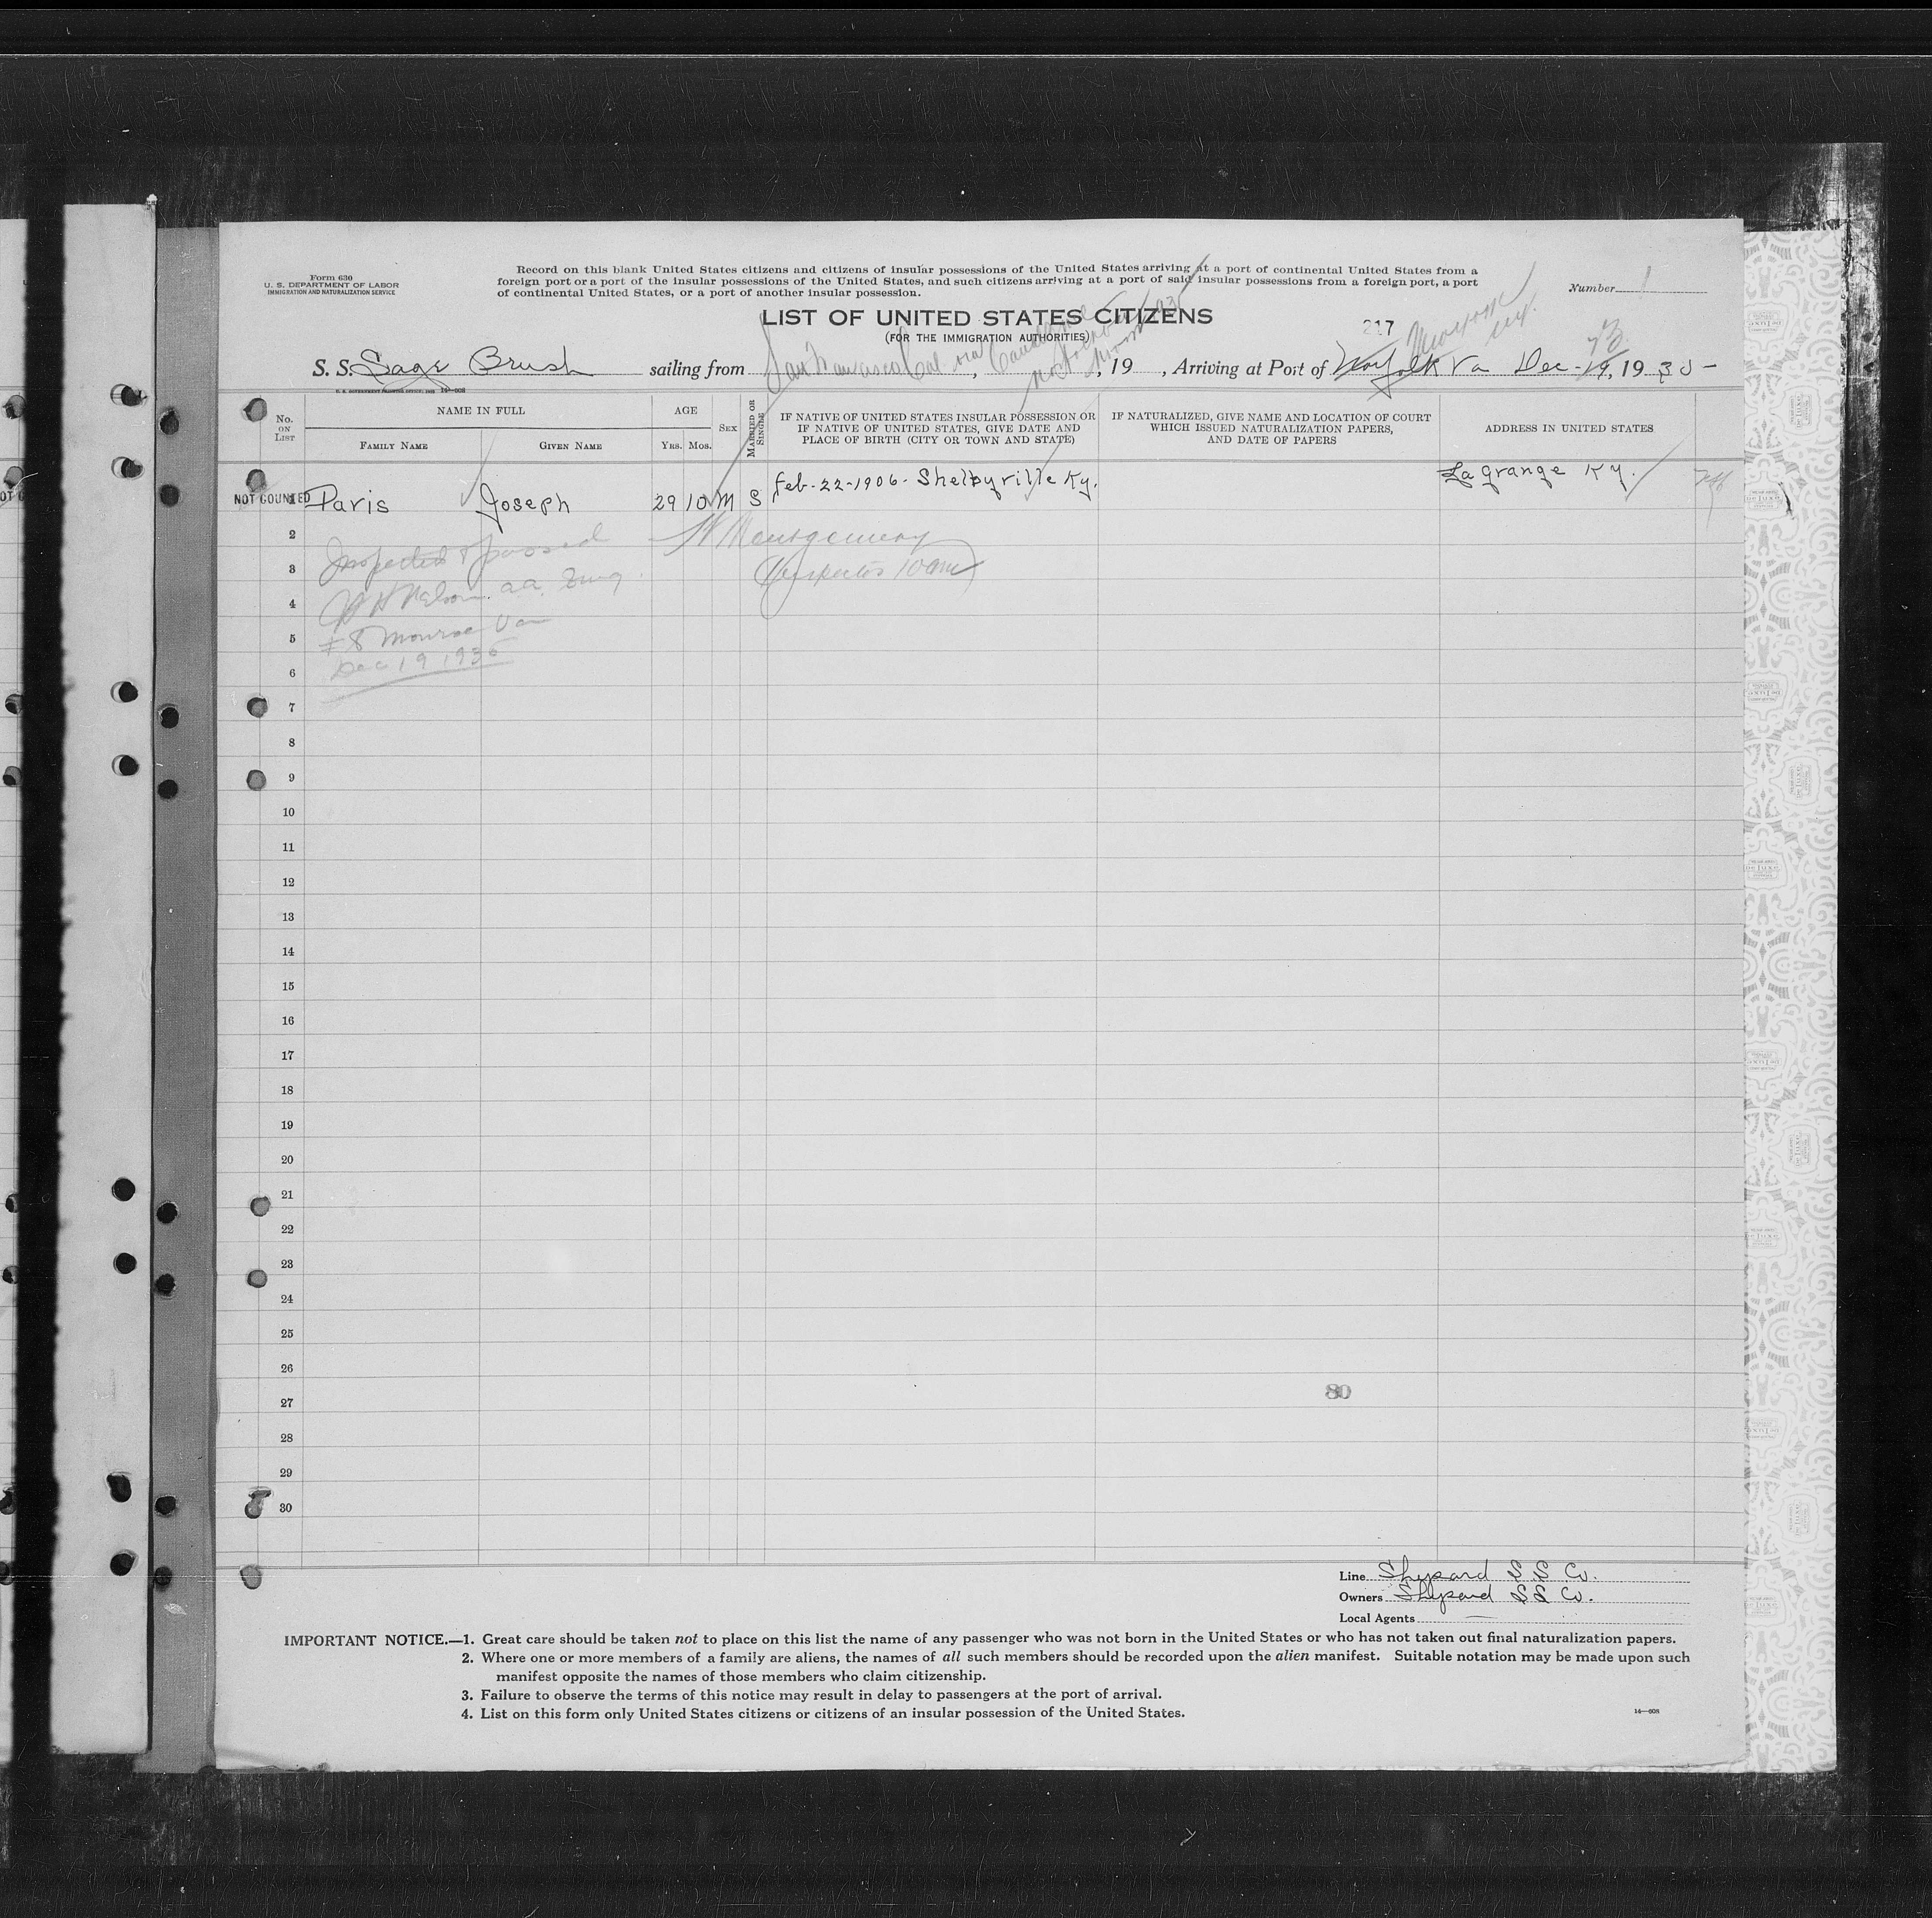 Form 630
U. S. DEPARTMENT OF LABOR
IMMIGRATION AND NATURALIZATION SERVICE
Record on this blank United States citizens and citizens of insular possessions of the United States arriving at a port of continental United States from a
foreign port or a port of the insular possessions of the United States, and such citizens arriving at a port of said insular possessions from a foreign port, a port
of continental United States, or a port of another insular possession.
Number 1
LIST OF UNITED STATES CITIZENS
(FOR THE IMMIGRATION AUTHORITIES)
217
S. S. Sage Brush sailing from San Francisco Cal via , 19 , Arriving at Port of Norfolk Va Dec - 19, 1935 -
No. ON LIST
NAME IN FULL
FAMILY NAME
GIVEN NAME
AGE
YRS. MOS.
SEX
MARRIED OR SINGLE
IF NATIVE OF UNITED STATES INSULAR POSSESSION OR
IF NATIVE OF UNITED STATES, GIVE DATE AND
PLACE OF BIRTH (CITY OR TOWN AND STATE)
IF NATURALIZED, GIVE NAME AND LOCATION OF COURT
WHICH ISSUED NATURALIZATION PAPERS,
AND DATE OF PAPERS
ADDRESS IN UNITED STATES
NOT COUNTED
1 Paris Joseph 29 10 M S Feb-22-1906- Shelbyville Ky. La Grange Ky.
2 Inspected & passed Montgomery
3 Inspector
4 Nelson
5 Monroe Va
6 Dec 19 1935
7
8
9
10
11
12
13
14
15
16
17
18
19
20
21
22
23
24
25
26
27
80
28
29
30
Line Shepard S S Co.
Owners Shepard SS Co.
Local Agents —
IMPORTANT NOTICE.—1. Great care should be taken not to place on this list the name of any passenger who was not born in the United States or who has not taken out final naturalization papers.
2. Where one or more members of a family are aliens, the names of all such members should be recorded upon the alien manifest. Suitable notation may be made upon such
manifest opposite the names of those members who claim citizenship.
3. Failure to observe the terms of this notice may result in delay to passengers at the port of arrival.
4. List on this form only United States citizens or citizens of an insular possession of the United States.
14—608